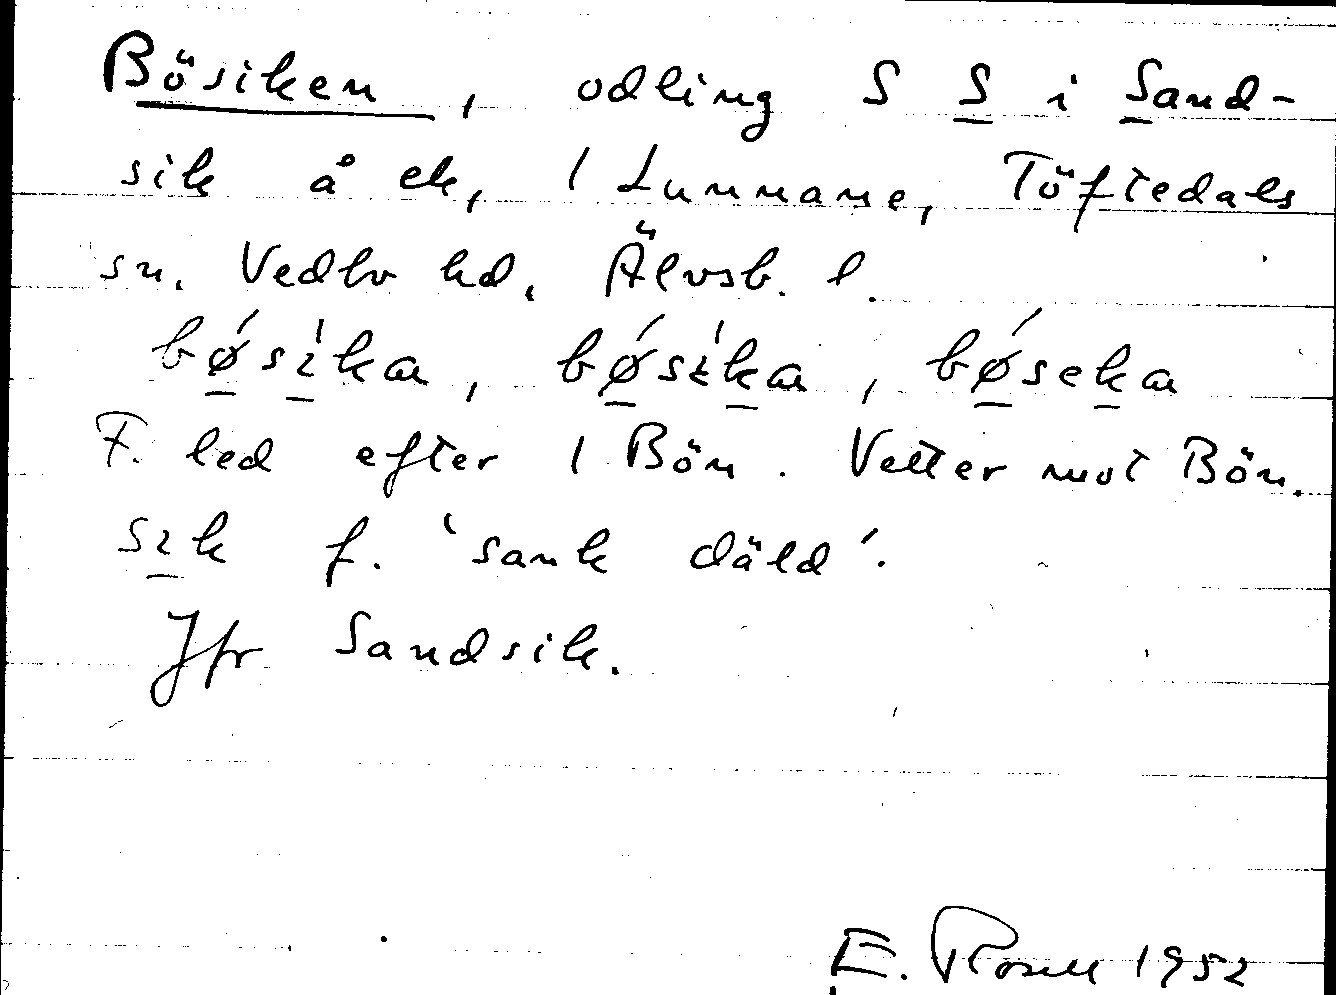 Bösiken, odling S S i Sand-
sik å ek, 1 Lunnane, Töftedals
sn. Vedbo hd. Älvsb. l.
bǿsíka, bǿsíka, bǿseka
F. led efter 1 Bön. Vetter mot Bön.
sık f. 'sank däld'.
Jfr Sandsik.
E. Rosell 1952